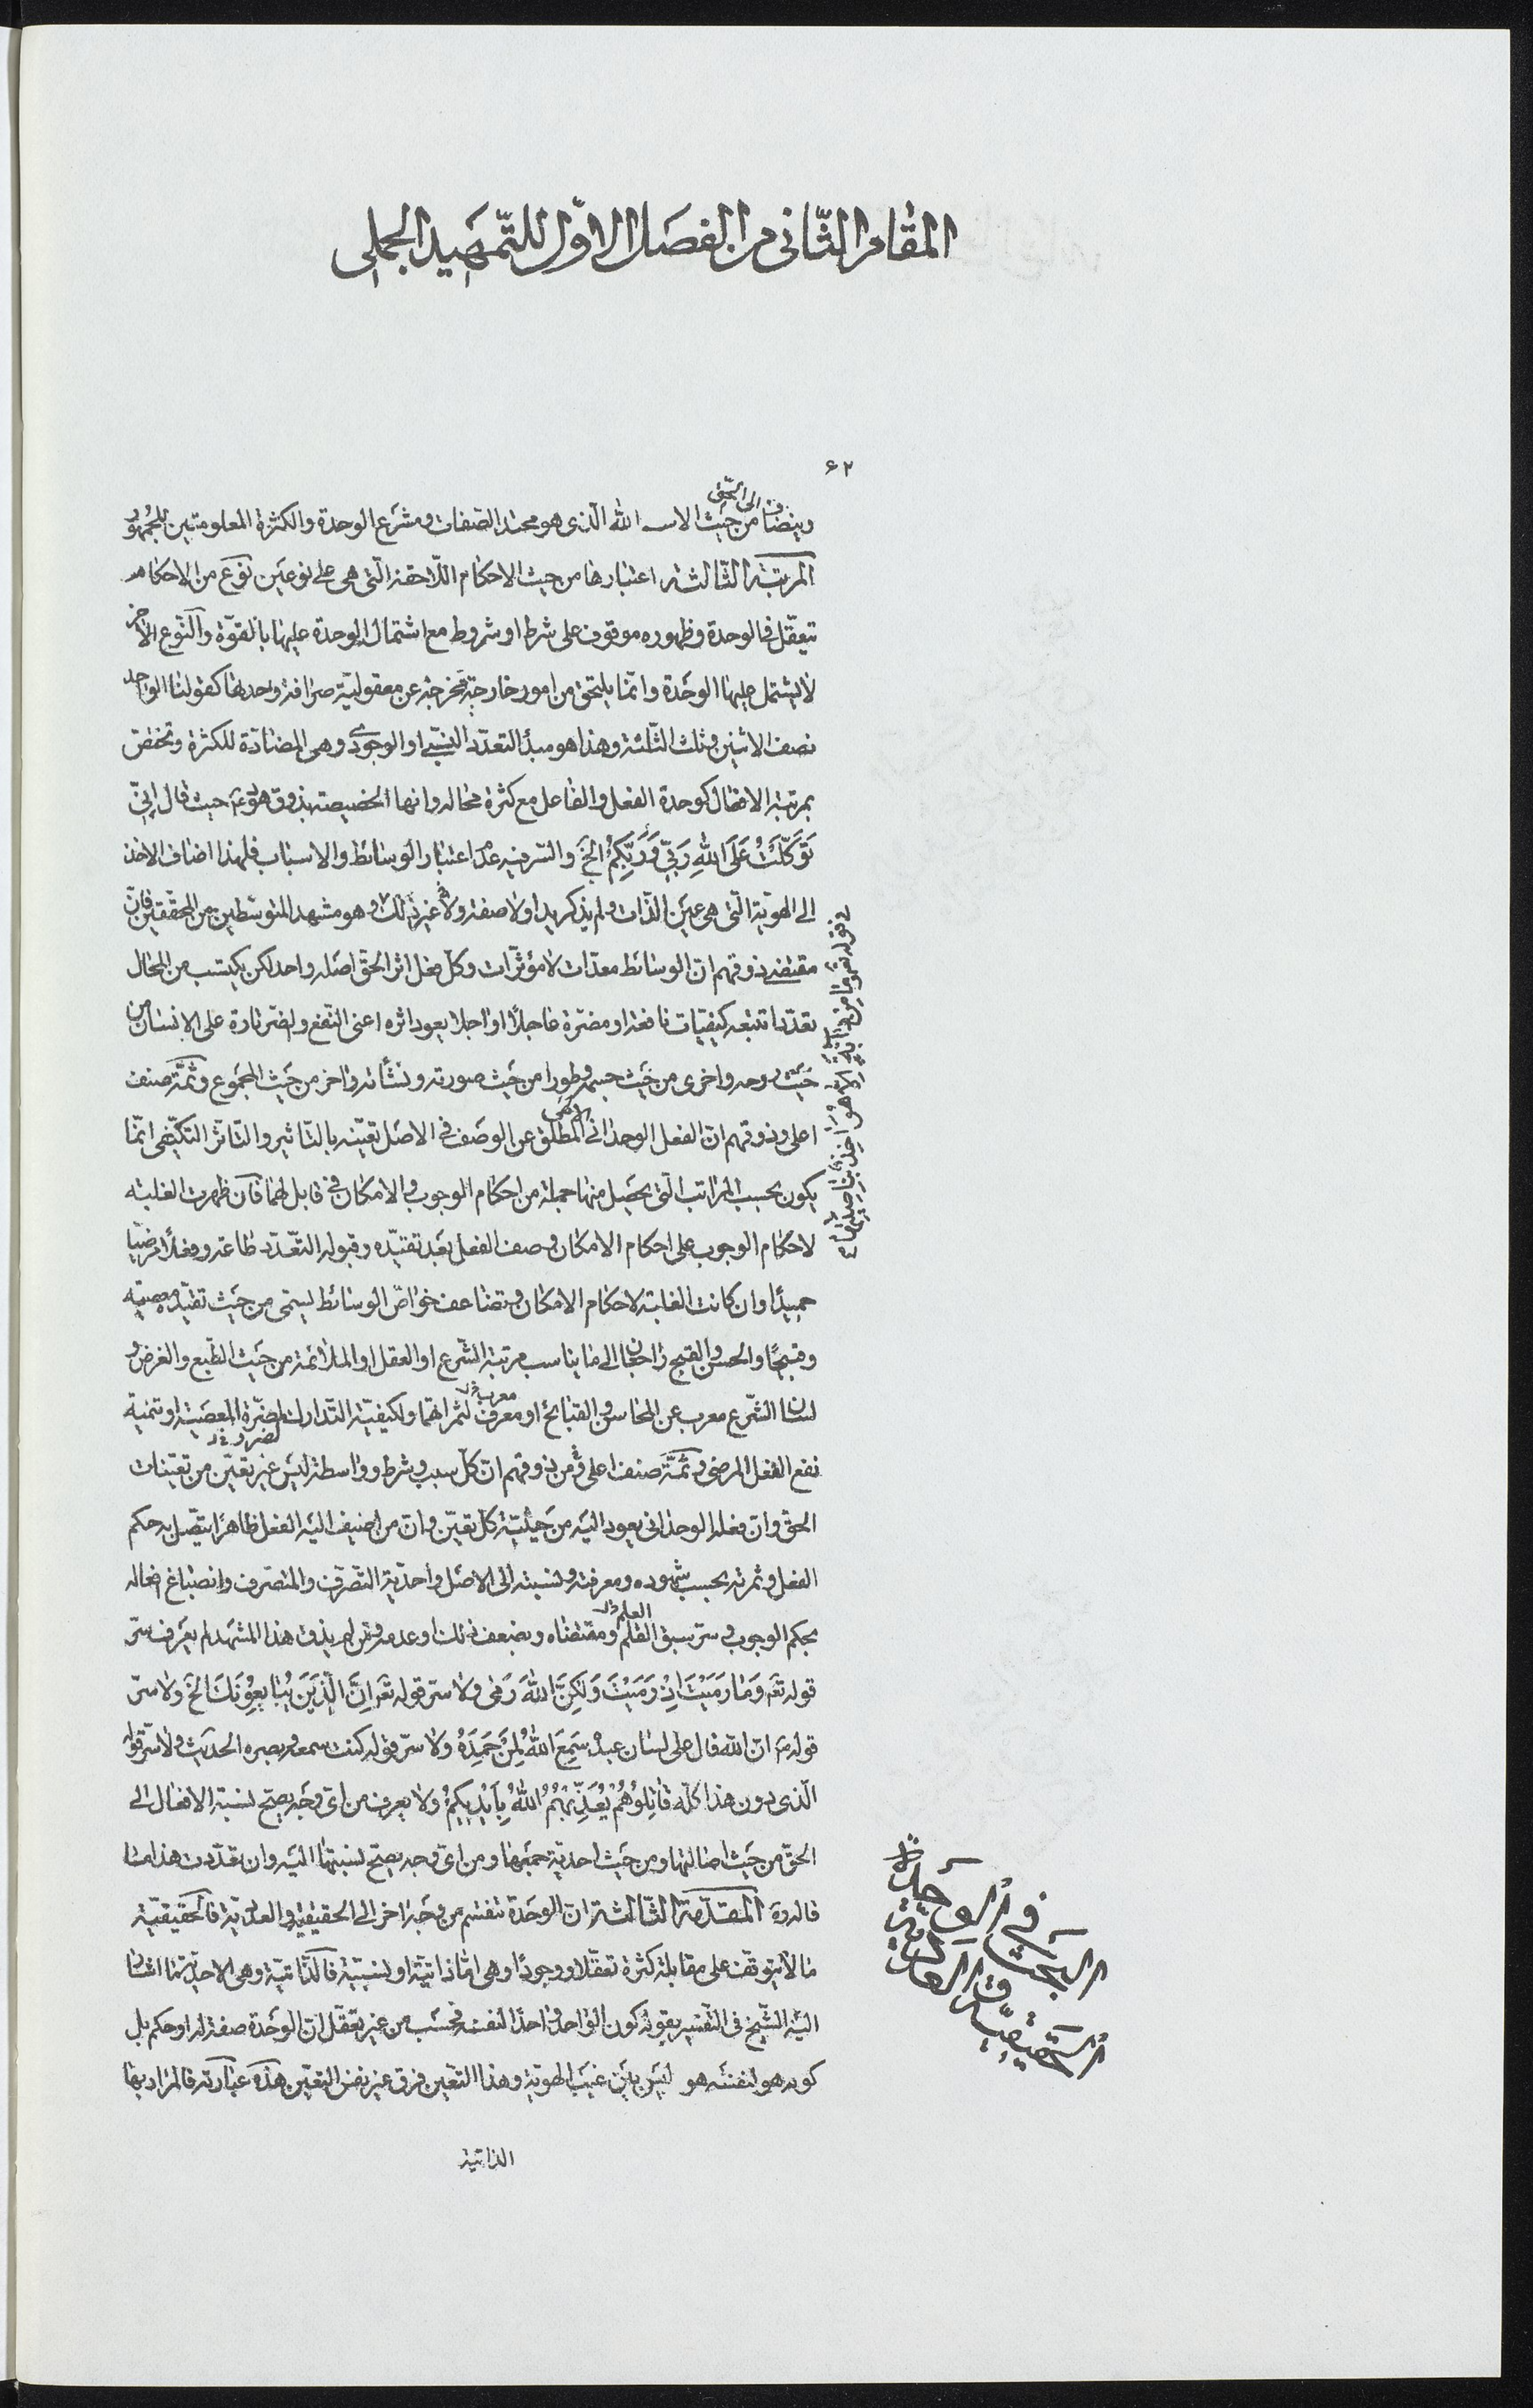 المقام الثّانى من الفصل الاوّل للتّمهيد الجملى
۶۲
الى الحقّ
وينضاف من حيث الاسم الله الّذى هو محتد الصّفات ومشرع الوحدة والكثرة المعلومتين للجمهور
المرتبة الثّالثة اعتبارها من حيث الاحكام اللّاحقة الّتى هى على نوعين نوع من الاحكام
تتعقّل فى الوحدة وظهوره موقوف على شرط او شروط مع اشتمال الوحدة عليها بالقوّة والنّوع الآخر
لا يشتمل عليها الوحدة وانّما يلتحق من امور خارجيّة مخرجة عن معقوليّة صرافة وحدتها كقولنا الواحد
نصف الاثنين وثلث الثّلثة وهذا هو مبدأ التعدّد النّسبى او الوجودى وهى المضادّة للكثرة وتختصّ
بمرتبة الافعال كوحدة الفعل والفاعل مع كثرة محاله وانها الخصيصة بذوق هود ع حيث قال اِنّى
تَوَكَّلْتُ عَلَى اللهِ رَبِّى وَرَبِّكُمْ الخ والسّر فيه عدم اعتبار الوسائط والاسباب فلهذا اضاف الاخذ
الى الهويّة الّتى هى عين الذّات ولم يذكر يدا ولا صفة ولا غير ذلك وهو مشهد المتوسّطين من المحقّقين فانّ
مقتضى ذوقهم انّ الوسائط معدّات لا مؤثّرات وكلّ فعل اثر الحقّ اصله واحد لكن يكتسب من المحال
تعدّدا تتبعه كيفيّات نافعة او مضرّة عاجلًا او اجلا يعود اثره اعنى النّفع والضرّ تارة على الانسان من
حيث روحه واخرى من حيث جسمه وطورا من حيث صورته ونشأته واخر من حيث المجموع وثمّة صنف
اعلى وذوقهم انّ الفعل الوحدانى الالهى المطلق عن الوصف فى الاصل تعيّنه بالتّاثير والتّاثّر التكيّفى انّما
يكون بحسب المراتب الّتى يحصل منها جملة من احكام الوجوب والامكان فى قابل لهما فان ظهرت الغلبة
لاحكام الوجوب على احكام الامكان وصف الفعل بعد تقيّده وقبوله التّعدّد طاعة وفعلًا مرضيّا
حميدًا وان كانت الغلبة لاحكام الامكان وتضاعف خواصّ الوسائط يسمّى من حيث تقيّده معصية
وقبيحًا والحسن والقبح راجعان الى ما يناسب مرتبة الشّرع او العقل او الملائمة من حيث الطّبع والغرض و
لسان الشّرع معرب عن المحاسن والقبائح او معرف لثمراتهما ولكيفيّة التّدارك لمضرّة المعصية او تنمية
نفع الفعل المرضى وثمّة صنف اعلى ومن ذوقهم انّ كلّ سبب وشرط وواسطة ليس غير تعيّن من تعيّنات
الحق وانّ فعله الوحدانى يعود اليه من حيثيّة كلّ تعيّن وانّ من اضيف اليه الفعل ظاهرًا يتّصل به حكم
الفعل وثمرته بحسب شهوده ومعرفته ونسبته الى الاصل واحديّة التّصرّف والمتصرّف وانصباغ افعاله
بحكم الوجوب وسرّ سبق القلم ومقتضاه وبضعف ذلك او عدمه ومن لم يذق هذا المشهد لم يعرف سرّ
قوله تع وَمَا رَمَيْتَ اِذْ رَمَيْتَ وَلكِنَّ اللهَ رَمى ولا سرّ قوله تع اِنَّ الَّذِينَ يُبَايِعُونَكَ الخ ولا سرّ
قوله ع انّ الله قال على لسان عبده سَمِعَ اللهُ لِمَنْ حَمِدَهُ ولا سرّ قوله كنت سمعه وبصره الحديث ولا سرّ قوله
الّذى دون هذا كلّه قَاتِلُوهُمْ يُعَذِّبْهُمُ اللهُ بِاَيْدِيكُمْ ولا يعرف من اىّ وجه يصحّ نسبة الافعال الى
الحقّ من حيث اصالتها ومن حيث احدية جمعها ومن اىّ وجه يصحّ نسبتها اليه وان تعدّدت هذا ما
قاله المقدّمة الثّالثة انّ الوحدة تنقسم من وجه اخر الى الحقيقيّة والعدديّة فالحقيقيّة
ما لا يتوقّف على مقابلة كثرة تعقّلا ووجودًا وهى امّا ذاتيّة او نسبيّة فالذّاتيّة وهى الاحديّة ما اشار
اليه الشّيخ فى التّفسير بقوله كون الواحد واحدًا لنفسه فحسب من غير تعقّل انّ الوحدة صفة له او حكم بل
كونه هو لنفسه هو ليس بين غيب الهويّة وهذا التعيّن فرق غير نفس التعيّن هذه عبارته فالمراد بها
الذاتية
البحث فى الوحدة
الحقيقيّة والعدديّة